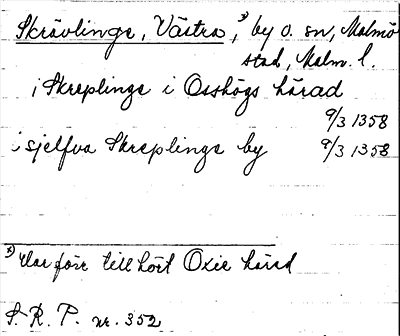 Skrävlinge, Västra,*) by o. sn, Malmö
stad, Malm. l.
i Skreplinge i Osshögs härad
9/3 1358
i sjelfva Skreplinge by 9/3 1358
*) Har förr till hört Oxie härad
S. R. P. nr. 352